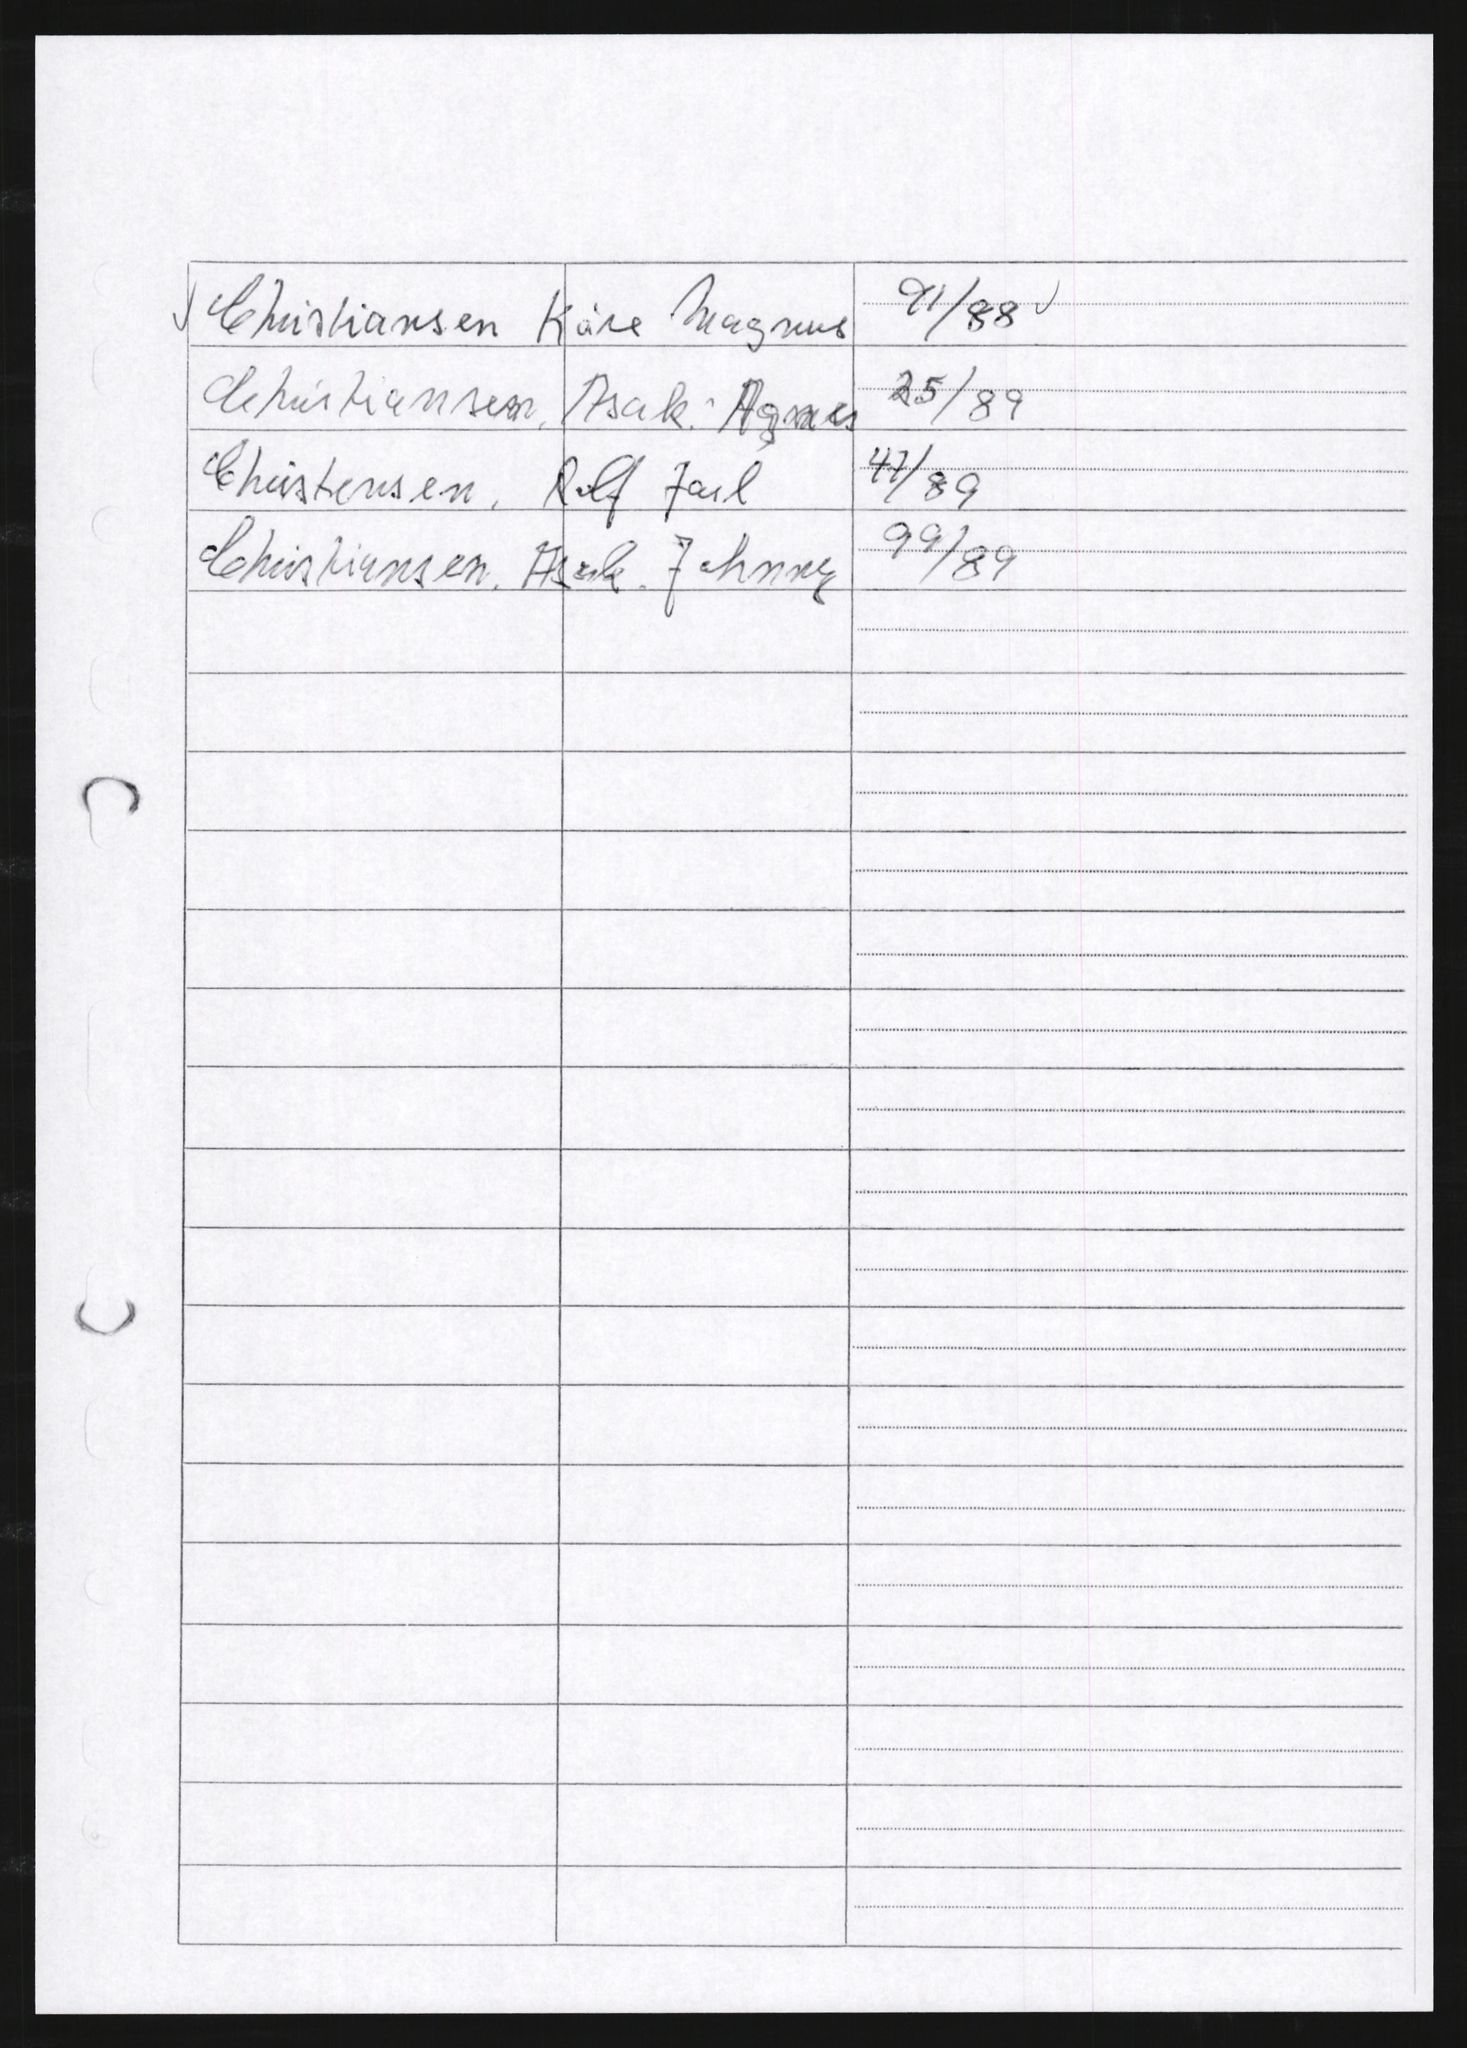 √ Christiansen Kåre Magnus 91/88 √
Christiansen, Asak. Agnes 25/89
Christensen, Rolf Jarl 47/89
Christiansen, Asak. Johnny 99/89